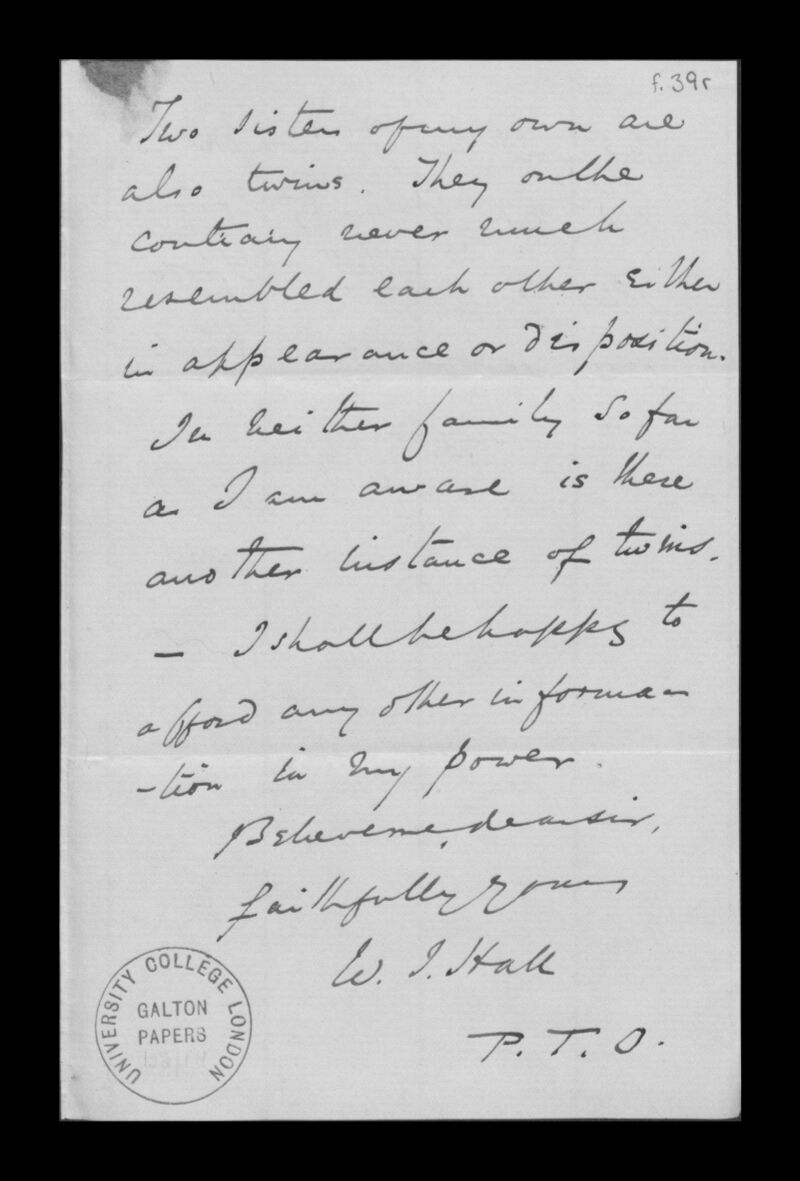 f. 39r
Two sisters of my own are
also twins. They on the
contrary never much
resembled each other either
in appearance or disposition.
In neither family so far
as I am aware is there
another instance of twins.
— I shall be happy to
afford any other informa-
-tion in my power.
Believe me, dear sir,
faithfully yours
W. J. Hall
P. T. O.
UNIVERSITY COLLEGE LONDON
GALTON
PAPERS